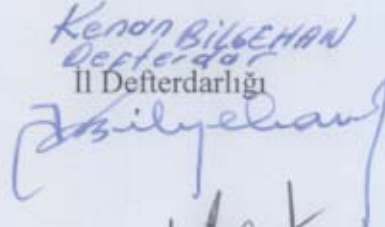 Kenan BİLGEHAN
Defterdar
İl Defterdarlığı
Bilgehan